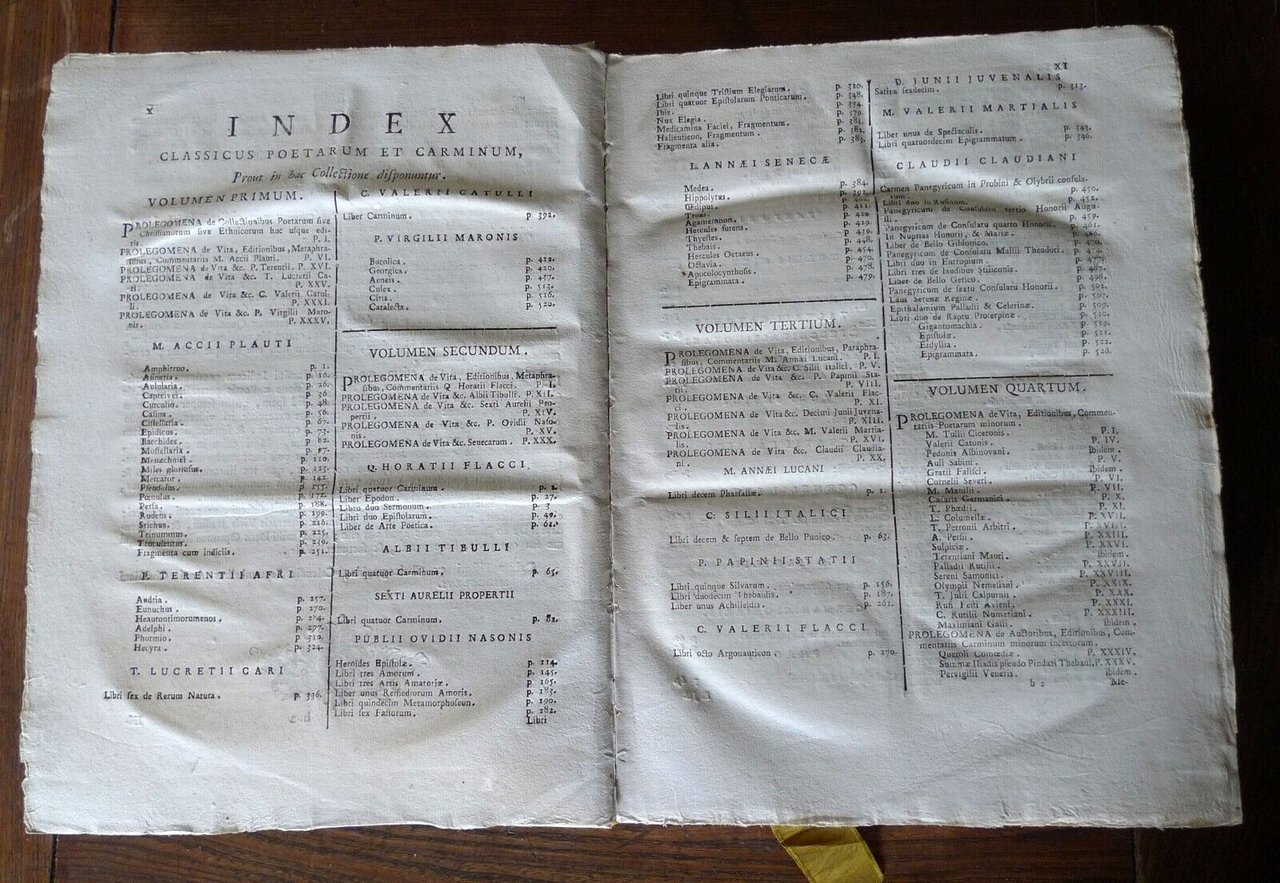 X
INDEX
CLASSICUS POETARUM ET CARMINUM,
Prout in hac Collectione disponuntur.
VOLUMEN PRIMUM.
PROLEGOMENA de Collectionibus Poetarum sive
Christianorum sive Ethnicorum hac usque edi-
tis. P. I.
PROLEGOMENA de Vita, Editionibus, Metaphra-
sibus, Commentariis M. Accii Plauti. P. VI.
PROLEGOMENA de Vita &c. P. Terentii. P. XVI.
PROLEGOMENA de Vita &c. T. Lucretii Ca-
ri. P. XXV.
PROLEGOMENA de Vita &c. C. Valerii Catul-
li. P. XXXI.
PROLEGOMENA de Vita &c. P. Virgilii Maro-
nis. P. XXXV.
M. ACCII PLAUTI
Amphitruo. p. 1.
Asinaria. p. 16.
Aulularia. p. 26.
Capteivei. p. 36
Curculio. p. 48.
Casina. p. 56.
Cistellaria. p. 67.
Epidicus. p. 73.
Bacchides. p. 82.
Mostellaria. p. 97.
Menaechmei. p. 110.
Miles gloriosus. p. 123.
Mercator. p. 142
Pseudolus.
Pœnulus. p. 172.
Persa. p. 188.
Rudens. p. 199.
Stichus. p. 216.
Trinummus. p. 225.
Truculentus. p. 239.
Fragmenta cum indiciis. p. 251.
P. TERENTII AFRI
Andria. p. 257.
Eunuchus. p. 270.
Heautontimorumenos. p. 284.
Adelphi. p. 297.
Phormio. p. 310.
Hecyra. p. 324.
T. LUCRETII CARI
Libri sex de Rerum Natura. p. 336.
C. VALERII CATULLI
Liber Carminum. p. 392.
P. VIRGILII MARONIS
Bucolica. p. 412.
Georgica. p. 420.
Aeneis. p. 437.
Culex. p. 513.
Ciris. p. 516.
Catalecta. p. 520.
VOLUMEN SECUNDUM.
PROLEGOMENA de Vita, Editionibus, Metaphra-
sibus, Commentariis Q. Horatii Flacci. P. I.
PROLEGOMENA de Vita &c. Albii Tibulli. P. XII.
PROLEGOMENA de Vita &c. Sexti Aurelii Pro-
pertii. P. XIV.
PROLEGOMENA de Vita &c. P. Ovidii Naso-
nis. P. XV.
PROLEGOMENA de Vita &c. Senecarum. P. XXX.
Q. HORATII FLACCI,
Libri quatuor Carminum. p. 1.
Liber Epodon. p. 27.
Libro duo Sermonum. p. 3
Libri duo Epistolarum. p. 49.
Liber de Arte Poetica. p. 61.
ALBII TIBULLI
Libri quatuor Carminum. p. 65.
SEXTI AURELII PROPERTII
Libri quatuor Carminum. p. 82.
PUBLII OVIDII NASONIS
Heroides Epistolæ. p. 114.
Libri tres Amorum. p. 145.
Libri tres Artis Amatoriæ. p. 165.
Liber unus Remediorum Amoris. p. 183.
Libri quindecim Metamorphoseon. p. 190.
Libri sex Fastorum. p. 282.
Libri
XI
Libri quinque Tristium Elegiarum. p. 320.
Libri quatuor Epistolarum Ponticarum. p. 348.
Ibis. p. 374.
Nux Elegia. p. 379.
Medicamina Faciei, Fragmentum. p. 381.
Halieuticon, Fragmentum. p. 382.
Fragmenta alia. p. 383.
L. ANNÆI SENECÆ
Medea. p. 384.
Hippolytus. p. 392.
Œdipus.
Troas. p. 411.
Agamemnon. p. 420.
Hercules furens. p. 429.
Thyestes. p. 439.
Thebais. p. 448.
Hercules Oetaeus. p. 454.
Octavia. p. 470.
Apocolocynthosis. p. 478.
Epigrammata. p. 479.
VOLUMEN TERTIUM.
PROLEGOMENA de Vita, Editionibus, Paraphra-
sibus, Commentariis M. Annæi Lucani. P. I.
PROLEGOMENA de Vita &c. C. Silii Italici. P. V.
PROLEGOMENA de Vita &c. P. Papinii Sta-
tii. P. VIII.
PROLEGOMENA de Vita &c. C. Valerii Flac-
ci. P. XI.
PROLEGOMENA de Vita &c. Decimi Junii Juvena-
lis. P. XIII.
PROLEGOMENA de Vita &c. M. Valerii Martia-
lis. P. XVI.
PROLEGOMENA de Vita &c. Claudii Claudia-
ni. P. XX.
M. ANNÆI LUCANI
Libri decem Pharsaliæ. p. 1.
C. SILII ITALICI
Libri decem & septem de Bello Punico. p. 63.
P. PAPINII STATII
Libri quinque Silvarum. p. 156.
Libri duodecim Thebaidis. p. 187.
Liber unus Achilleidis. p. 261.
C. VALERII FLACCI
Libri octo Argonauticon. p. 270.
D. JUNII JUVENALIS
Satiræ sexdecim. p. 313.
M. VALERII MARTIALIS
Liber unus de Spectaculis. p. 343.
Libri quatuordecim Epigrammatum. p. 346.
CLAUDII CLAUDIANI
Carmen Panegyricum in Probini & Olybrii consula-
tum. p. 450.
Libri duo in Rufinum. p. 452.
Panegyricum de Consulatu tertio Honorii Augu-
sti. p. 459.
Panegyricum de Consulatu quarto Honorii. p. 461.
In Nuptias Honorii, & Mariæ.
Liber de Bello Gildonico.
Panegyricum de Consulatu Mallii Theodori. p. 474.
Libri duo in Eutropium.
Libri tres de laudibus Stiliconis. p. 487.
Liber de Bello Getico. p. 496.
Panegyricum de sexto Consulatu Honorii. p. 502.
Laus Serenæ Reginæ. p. 507.
Epithalamium Palladii & Celerinæ. p. 509.
Libri duo de Raptu Proserpinæ. p. 510.
Gigantomachia. p. 519.
Epistolæ. p. 521.
Eidyllia. p. 522.
Epigrammata. p. 526.
VOLUMEN QUARTUM.
PROLEGOMENA de Vita, Editionibus, Commen-
tariis Poetarum minorum.
M. Tullii Ciceronis. P. I.
Valerii Catonis. P. IV.
Pedonis Albinovani. Ibidem.
Auli Sabini. P. V.
Gratii Falisci. Ibidem.
Cornelii Severi. P. VI.
M. Manilii. P. VII.
Cæsaris Germanici. P. X.
T. Phædii. P. XI.
L. Columellæ. P. XVII.
T. Petronii Arbitri. P. XVIII.
A. Persii. P. XXII.
Sulpiciæ. P. XXVI.
Terentiani Mauri. ibidem.
Palladii Rutilii. P. XXVII.
Sereni Samonici. P. XXVIII.
Olympii Nemesiani. P. XXIX.
T. Julii Calpurnii. P. XXX.
Rufi Festi Avieni. P. XXXI.
C. Rutilii Numatiani. P. XXXIII.
Maximiani Galli. ibidem.
PROLEGOMENA de Auctoribus, Editionibus, Com-
mentariis Carminum minorum incertorum.
Queroli Comœdiæ. P. XXXIV.
Summæ Iliadis pseudo Pindari Thebani. P. XXXV.
Pervigilii Veneris. ibidem.
b 2 Me-